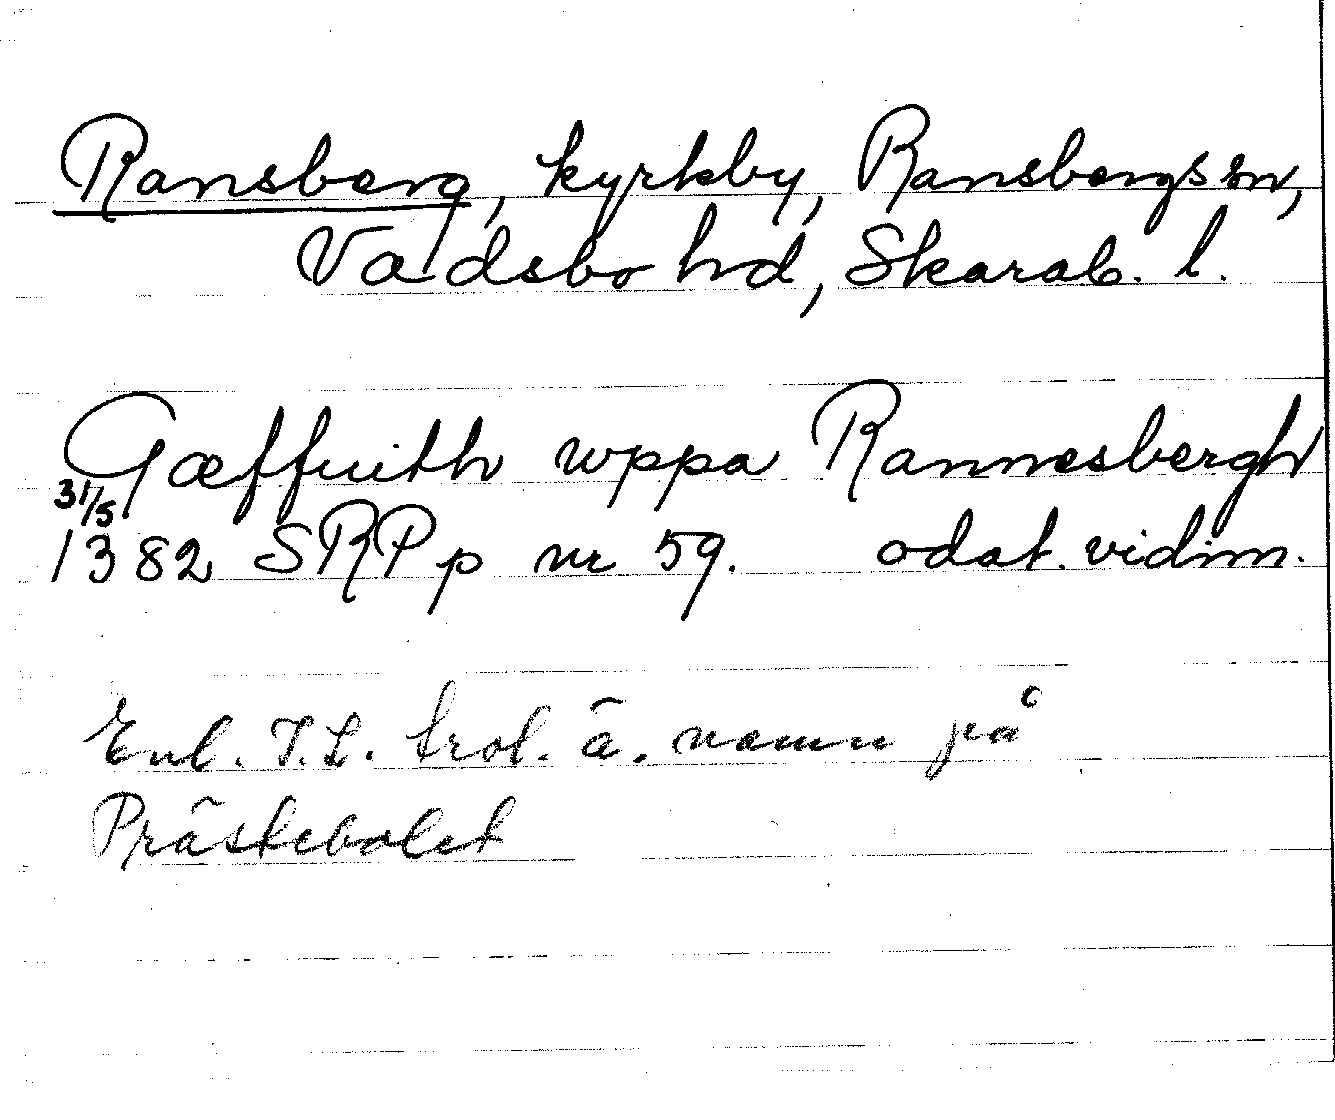 Ransberg, kyrkby, Ransbergs sn,
Vadsbo hd, Skarab. l.
Gæffuith wppa Rannesbergh
31/5
1382 SRPp nr 59. odat. vidim.
Enl. I.L. trol. ä. namn på
Prästebolet